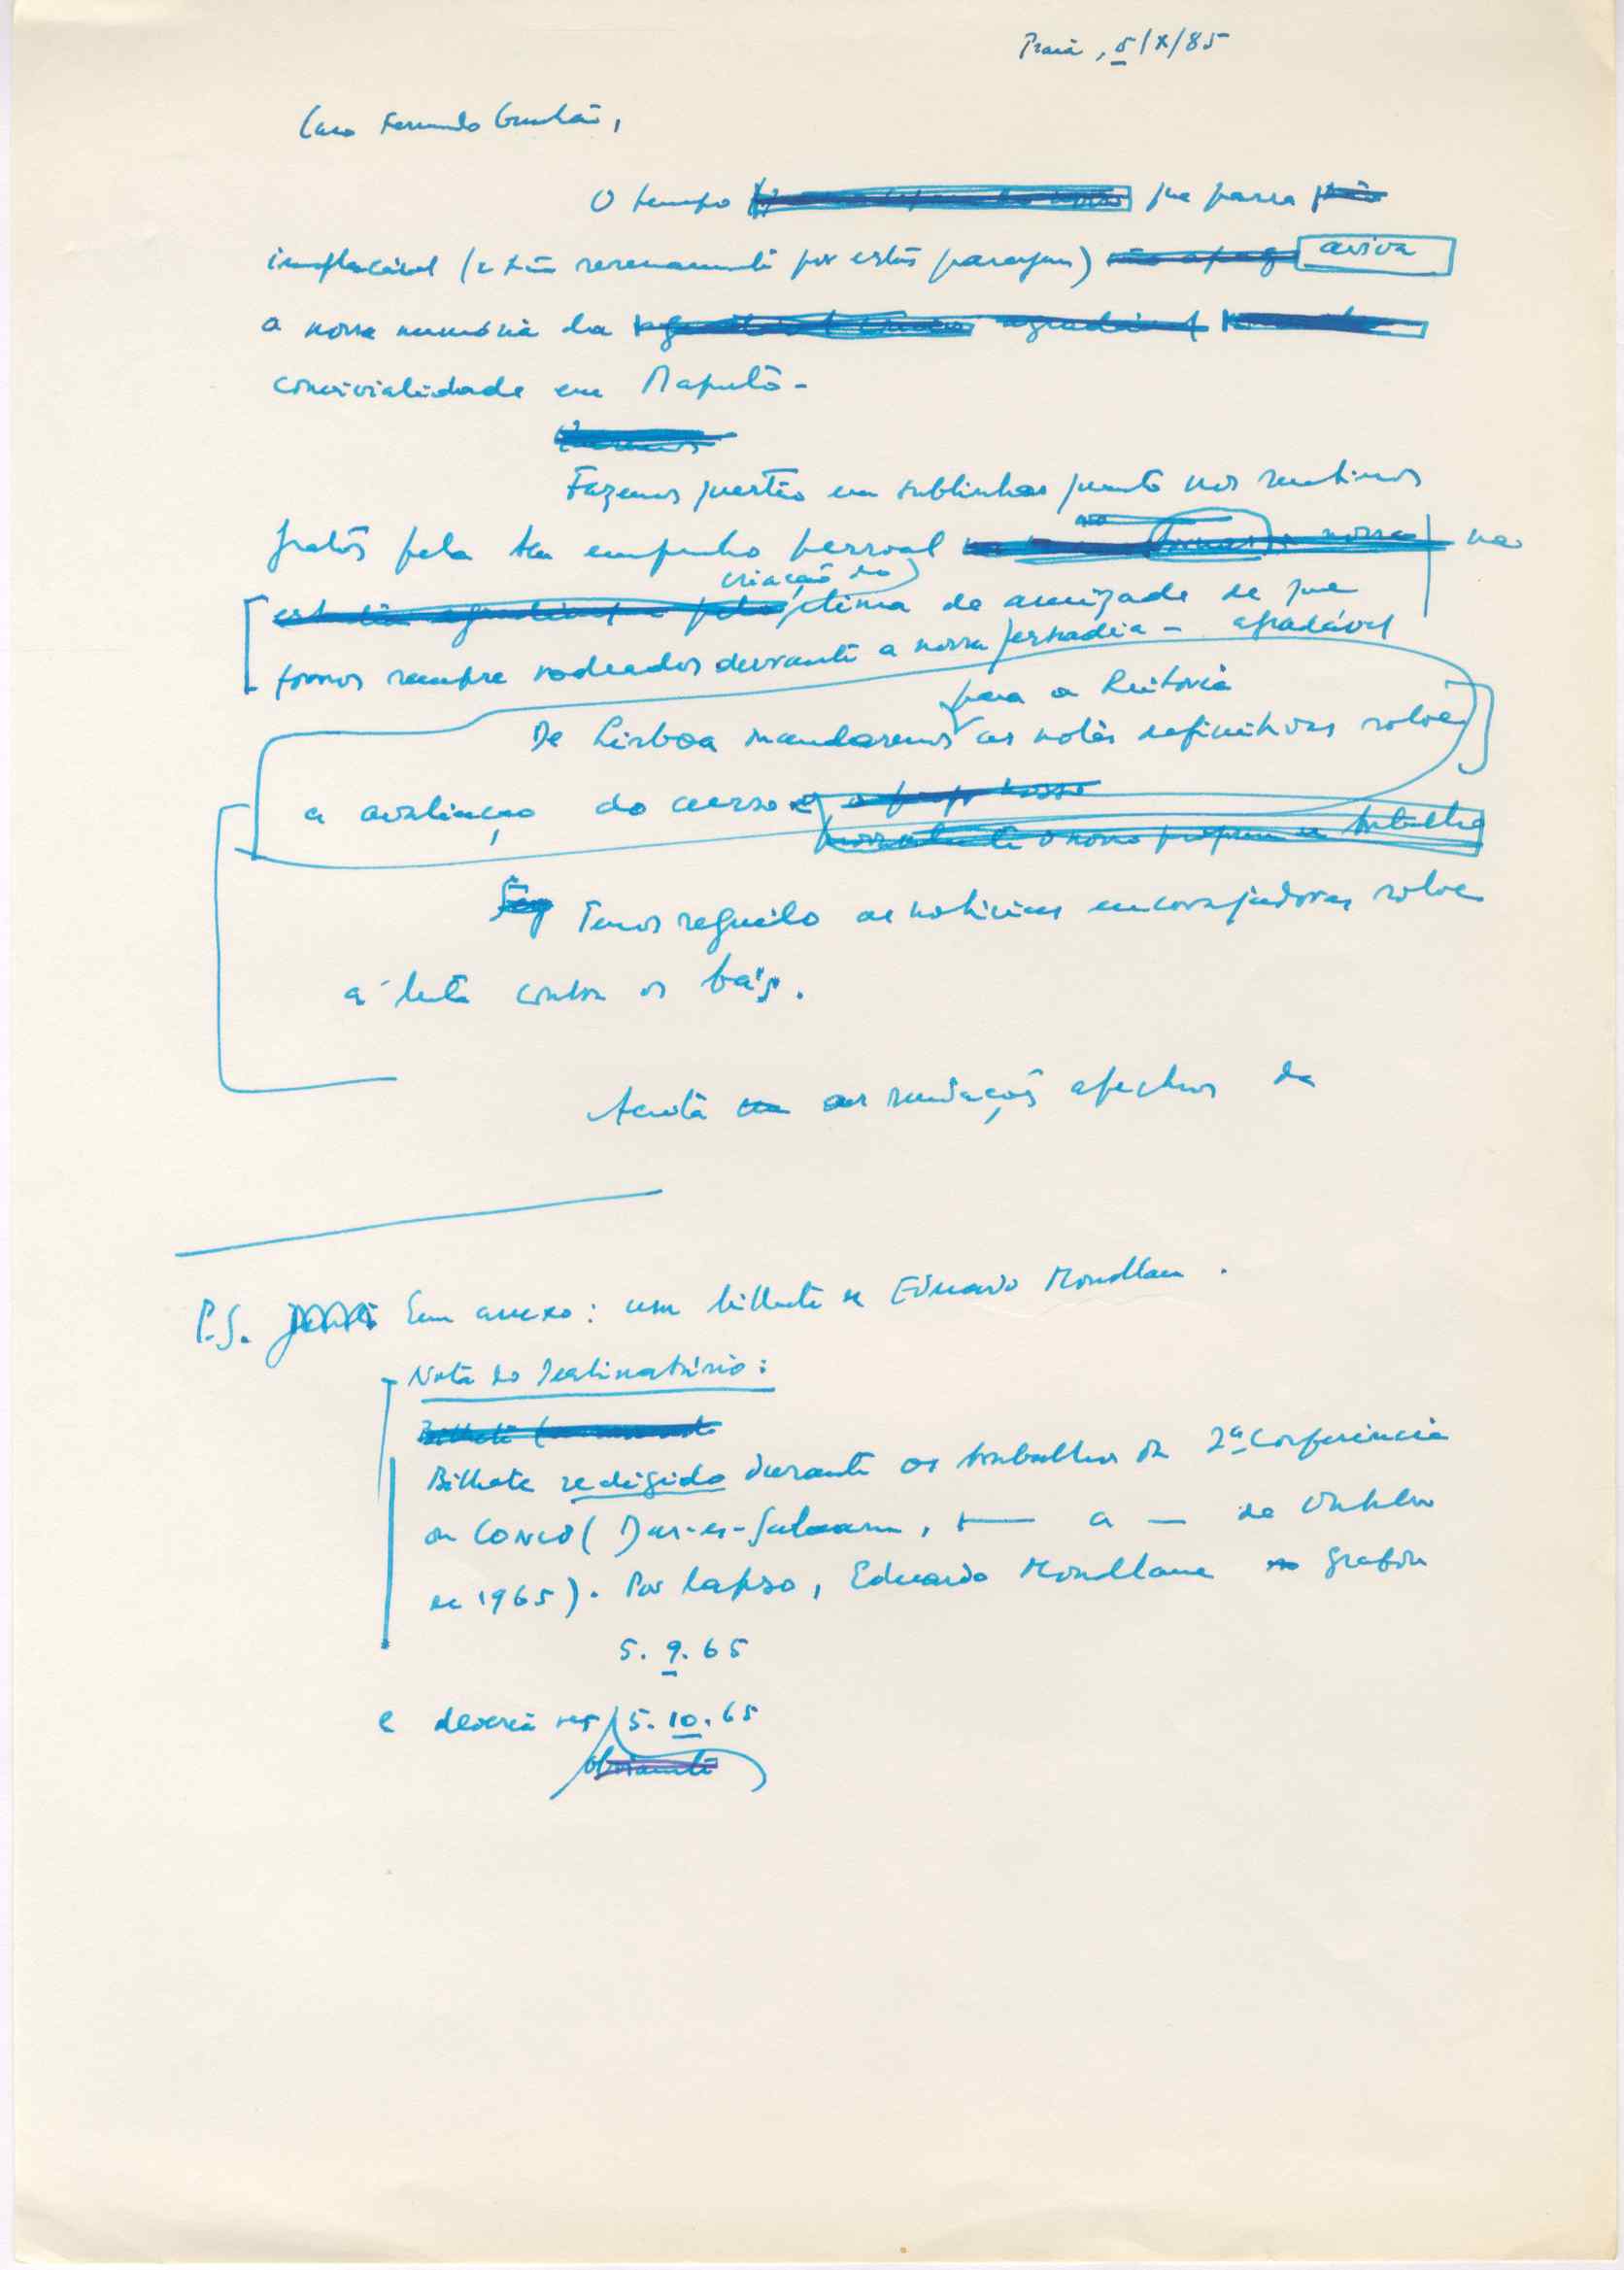 Praia, 5/X/85
Caro Fernando Ganhão,
O tempo que passa
implacável (e tão serenamente por estas paragens) aviva
a nossa memória da
convivialidade em Maputo.
Fazemos questão em sublinhar quanto nos sentimos
gratos pelo seu empenho pessoal na
criação do
clima de amizade de que
fomos sempre rodeados durante a nossa estadia – agradável
para a Reitoria
De Lisboa mandaremos as notas definitivas sobre
a avaliação do curso e
o nosso trabalho
Temos seguido as notícias encorajadoras sobre
a luta contra os bá's.
Aceita as saudações afectuosas de
P.S. Em anexo: um bilhete de Eduardo Mondlane.
Nota do Destinatário:
Bilhete
Bilhete redigido durante os trabalhos da 2ª Conferência
da CONCP (Dar-es-Salaam, — a — de Outubro
de 1965). Por lapso, Eduardo Mondlane grafou
5.9.65
e deveria ser 5.10.65
obviamente